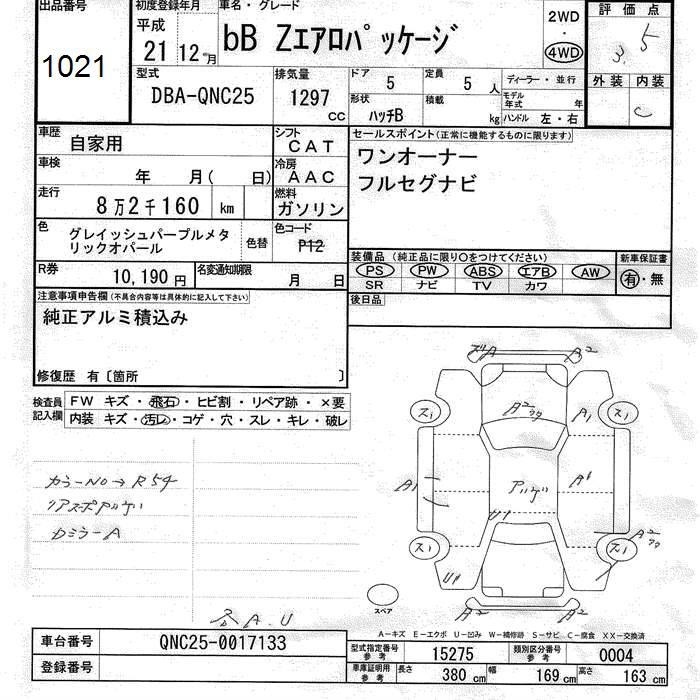 出品番号
1021
初度登録年月
平成
21年12月
車名・グレード
bB Zエアロパッケージ
2WD
・
4WD
評価点
3.5
外装 内装
C
型式
DBA-QNC25
排気量
1297 CC
ドア
5
定員
5 人
形状
ハッチB
積載
kg
ディーラー・並行
モデル年式 年
ハンドル 左・右
車歴
自家用
シフト
CAT
車検
年 月( 日)
冷房
AAC
走行
8万2千160 km
燃料
ガソリン
セールスポイント(正常に機能するものに限ります)
ワンオーナー
フルセグナビ
色
グレイッシュパープルメタ
リックオパール
色替
色コード
P12
R券
10,190円
名変通知期限
月 日
装備品 (純正品に限り○をつけてください)
PS PW ABS エアB AW
SR ナビ TV カワ
新車保証書
有・無
後日品
注意事項申告欄(不具合内容等は具体的に記入して下さい)
純正アルミ積込み
修復歴 有〔箇所 〕
検査員
記入欄
FW キズ・飛石・ヒビ割・リペア跡・×要
内装 キズ・汚レ・コゲ・穴・スレ・キレ・破レ
カラーNo→R54
リアスポアリゲ
ロミラーA
A.U
A2
A2
ス1
ス1
A1
A1
U1
ス1
ス1
U1
A2
A2
スペア
A-キズ E-エクボ U-凹み W-補修跡 S-サビ C-腐食 XX-交換済
車台番号
QNC25-0017133
登録番号
型式指定番号
参考
15275
類別区分番号
参考
0004
車庫証明用
参考
長さ
380 cm
幅
169 cm
高さ
163 cm